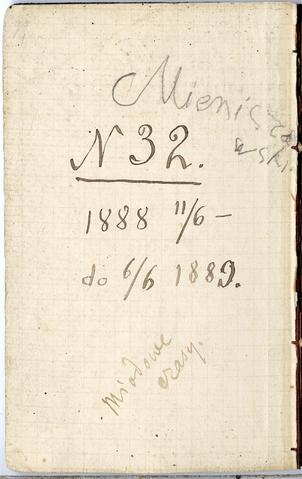 N 32.
1888 11/6 –
do 6/6 1889.
Miodowe
czasy.